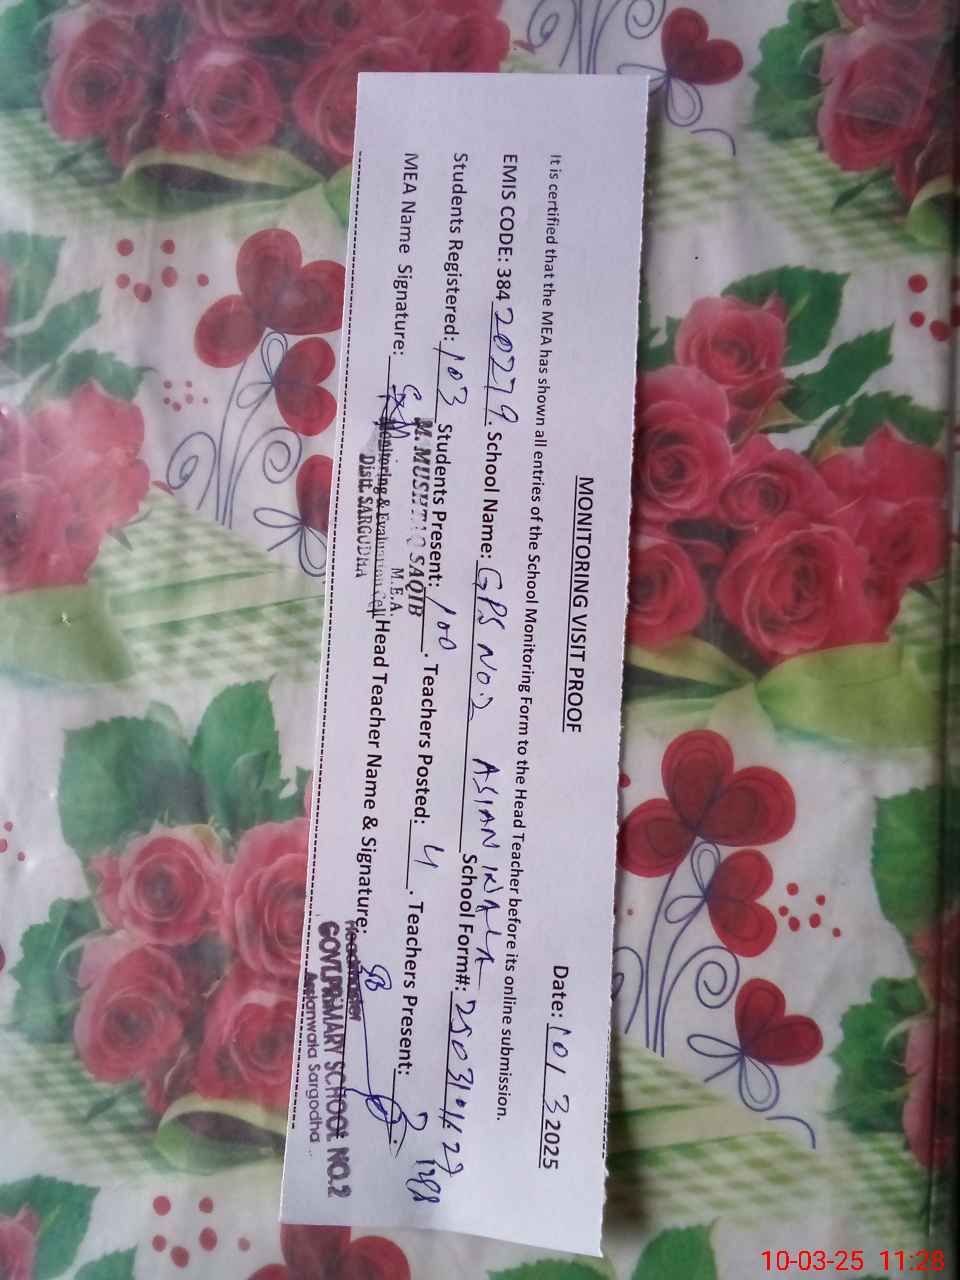 MONITORING VISIT PROOF
Date: 10/ 3 2025
It is certified that the MEA has shown all entries of the School Monitoring Form to the Head Teacher before its online submission.
EMIS CODE: 38420279. School Name: GPS NO.2 ASIANWALA School Form#:
Students Registered: 103 Students Present: 100. Teachers Posted: 4. Teachers Present:
MEA Name Signature: Head Teacher Name & Signature:
M. MUSHTAQ SAQIB
M.E.A.
Monitoring & Evaluation Cell
Distt. SARGODHA
Headmaster
GOVT.PRIMARY SCHOOL NO.2
Aslanwala Sargodha
10-03-25 11:28